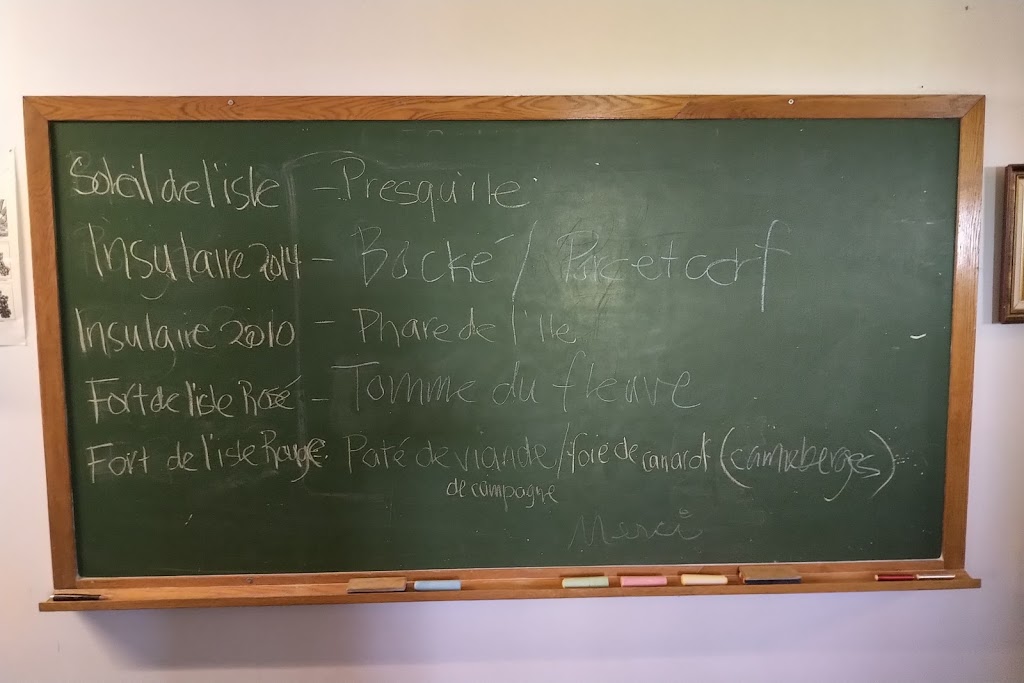 Soleil de l'isle - Presqu'ile
Insulaire 2014 - Bocké / Porc et cerf
Insulaire 2010 - Phare de l'île
Fort de l'isle Rosé - Tomme du fleuve
Fort de l'isle Rouge: Paté de viande / foie de canard (canneberges)
de campagne
Merci